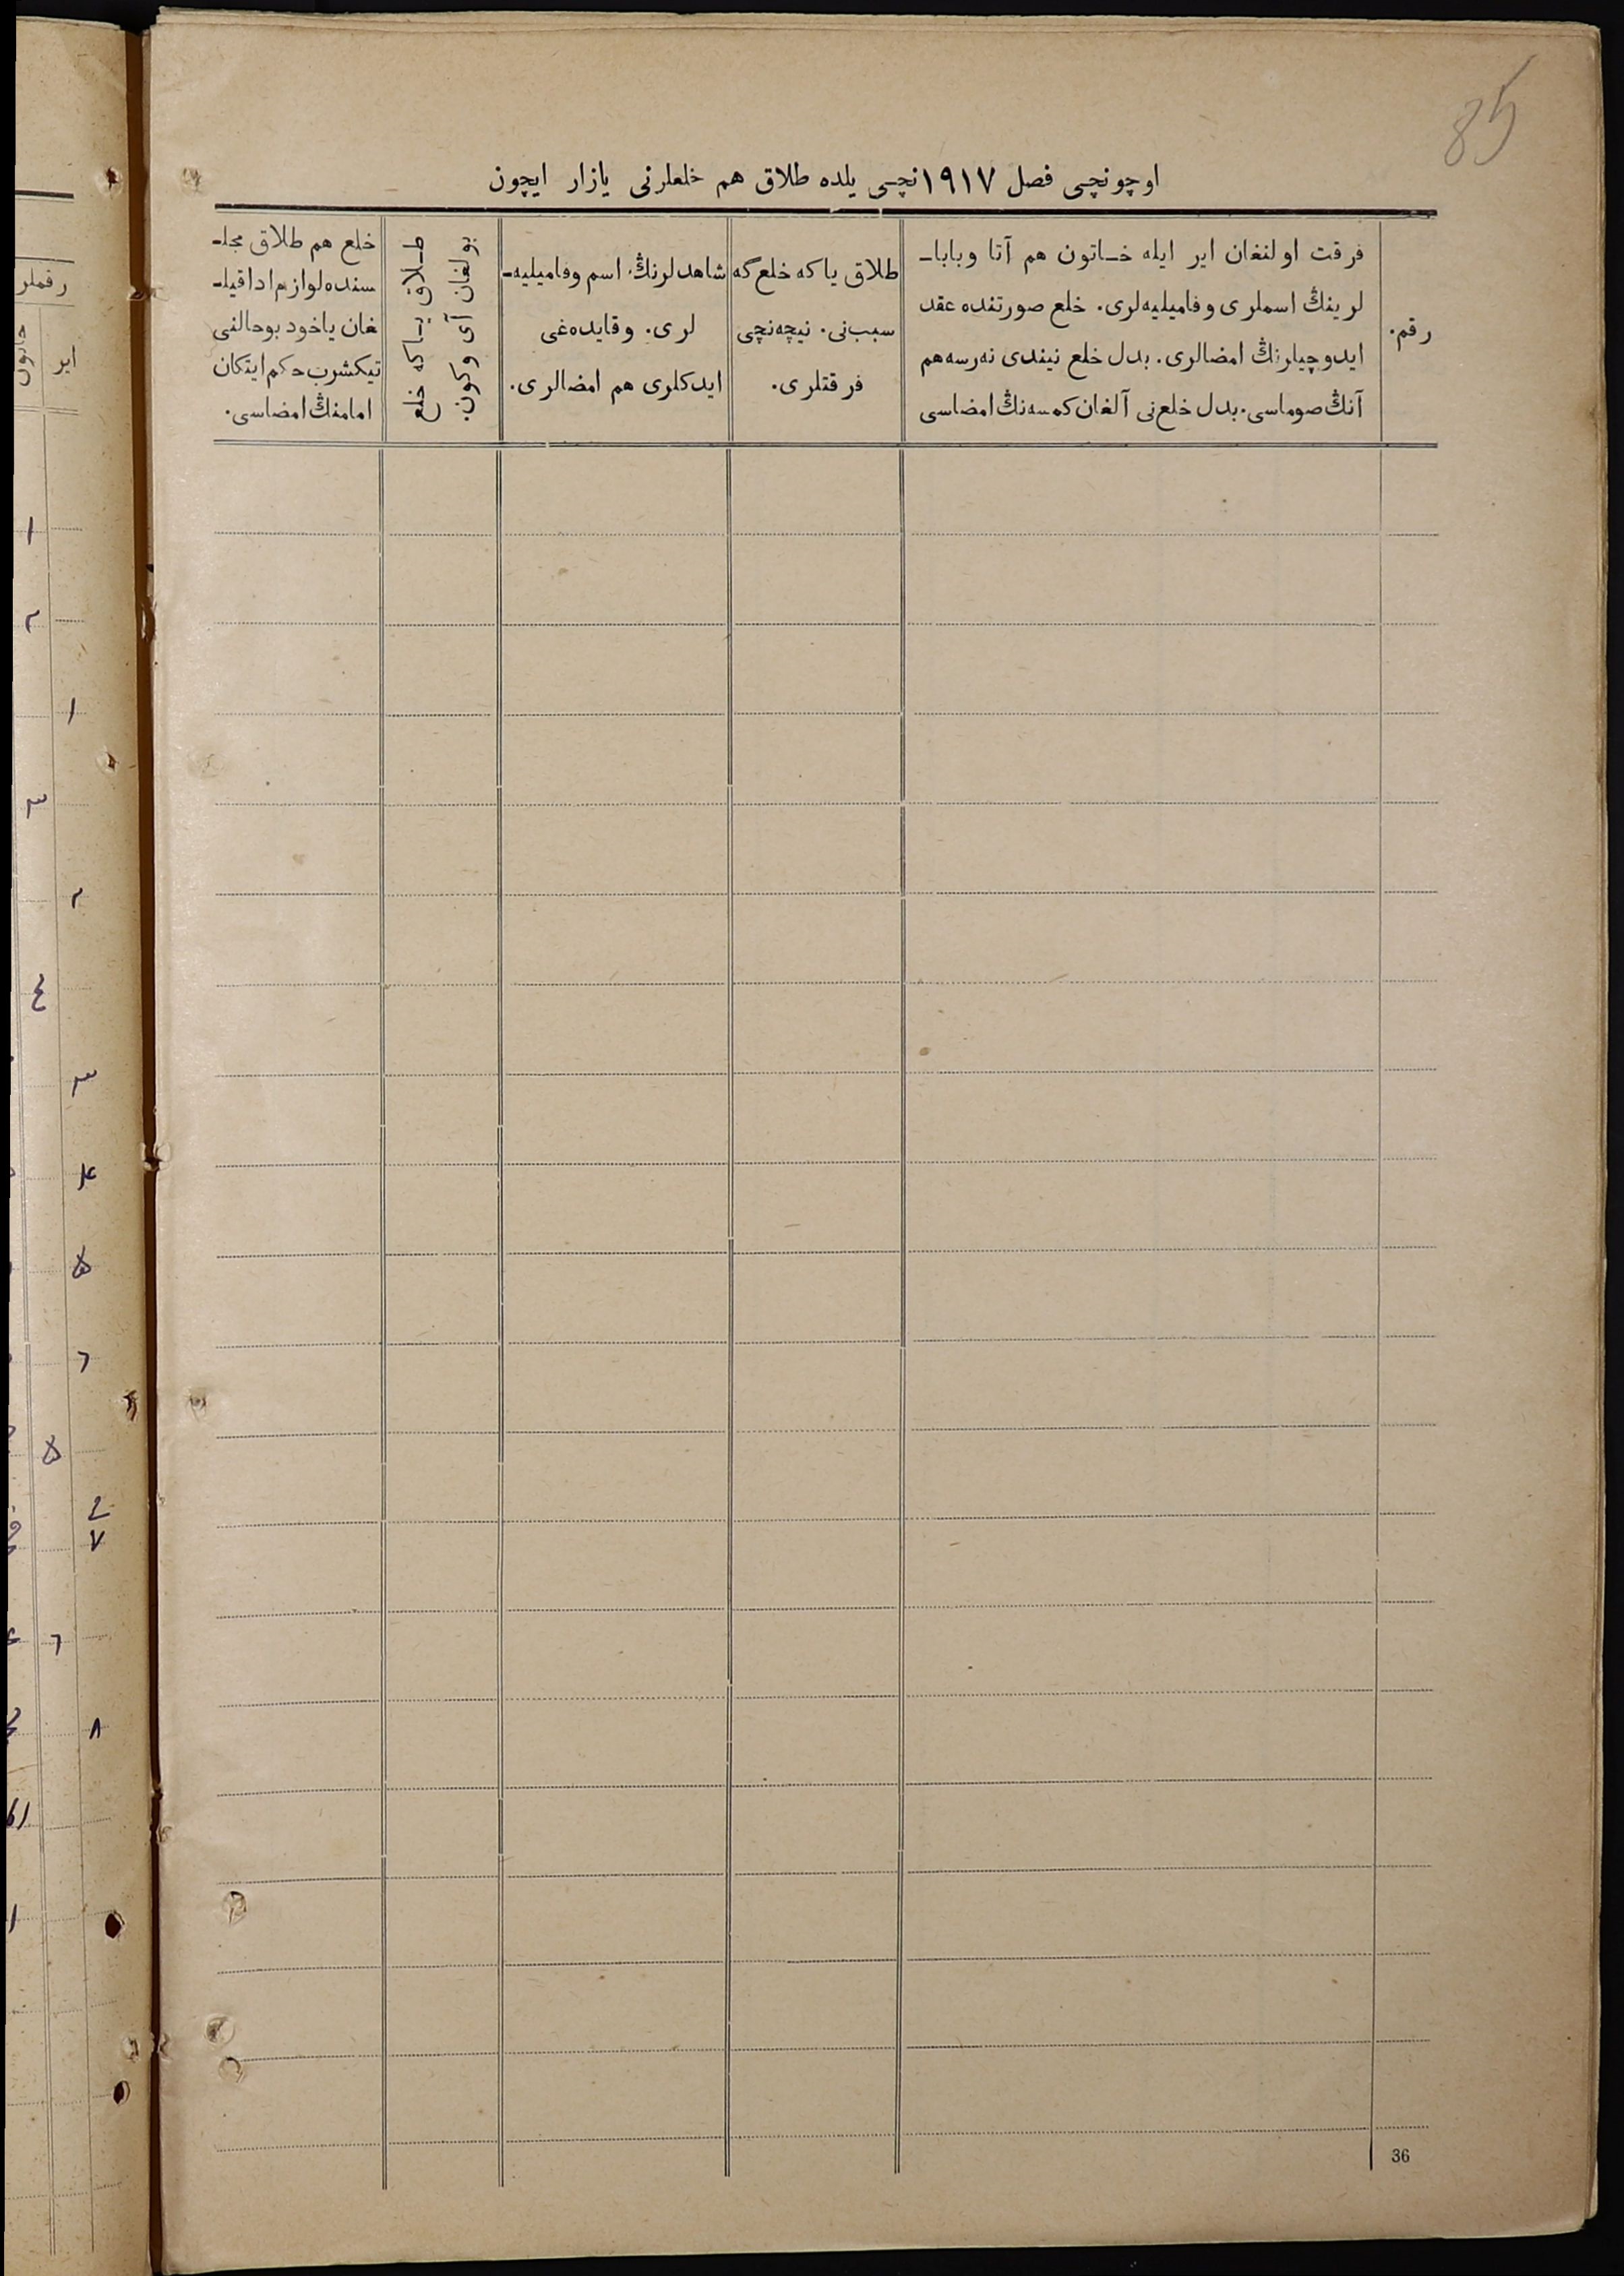 85
اوچونچی فصل ۱۹۱۷نچی یلده طلاق هم خلعلرنی یازار ایچون
رقم.
فرقت اولنغان ایر ایله خــاتون هم آتا وباباــ
لرینڭ اسملری وفامیلیه‌لری. خلع صورتنده عقد
ایدوچیلرنڭ امضالری. بدل خلع نیندی نه‌رسه‌هم
آنڭ صوماسی. بدل خلع‌نی آلغان کمسه‌نڭ امضاسی
طلاق یاکه خلع‌گه
سبب‌نی. نیچه‌نچی
فرقتلری.
شاهدلرنڭ اسم وفامیلیه‌ــ
لری. وقایده‌غی
ایدکلری هم امضالری.
طــلاق یــاکه خلع
بولغان آی وکون.
خلع هم طلاق مجلــ
سنده‌لوازم ادا قیلــ
غان یاخود بوحالنی
تیکشرب حکم ایتکان
امامنڭ امضاسی.
36
رقملر
ایر
خاتون
۱
۲
۱
۳
۲
٤
۳
۴
۵
٦
۵
۷
٦
۸